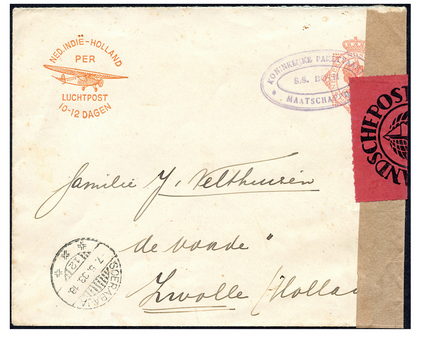 NED. INDIË-HOLLAND
PER
LUCHTPOST
10-12 DAGEN
KONINKLIJKE PAKETV
S.S.
MAATSCHA
LANDSCHEPOST
Familie J. Velthuisen
de
Zwolle (Hollan
SOERABAJA